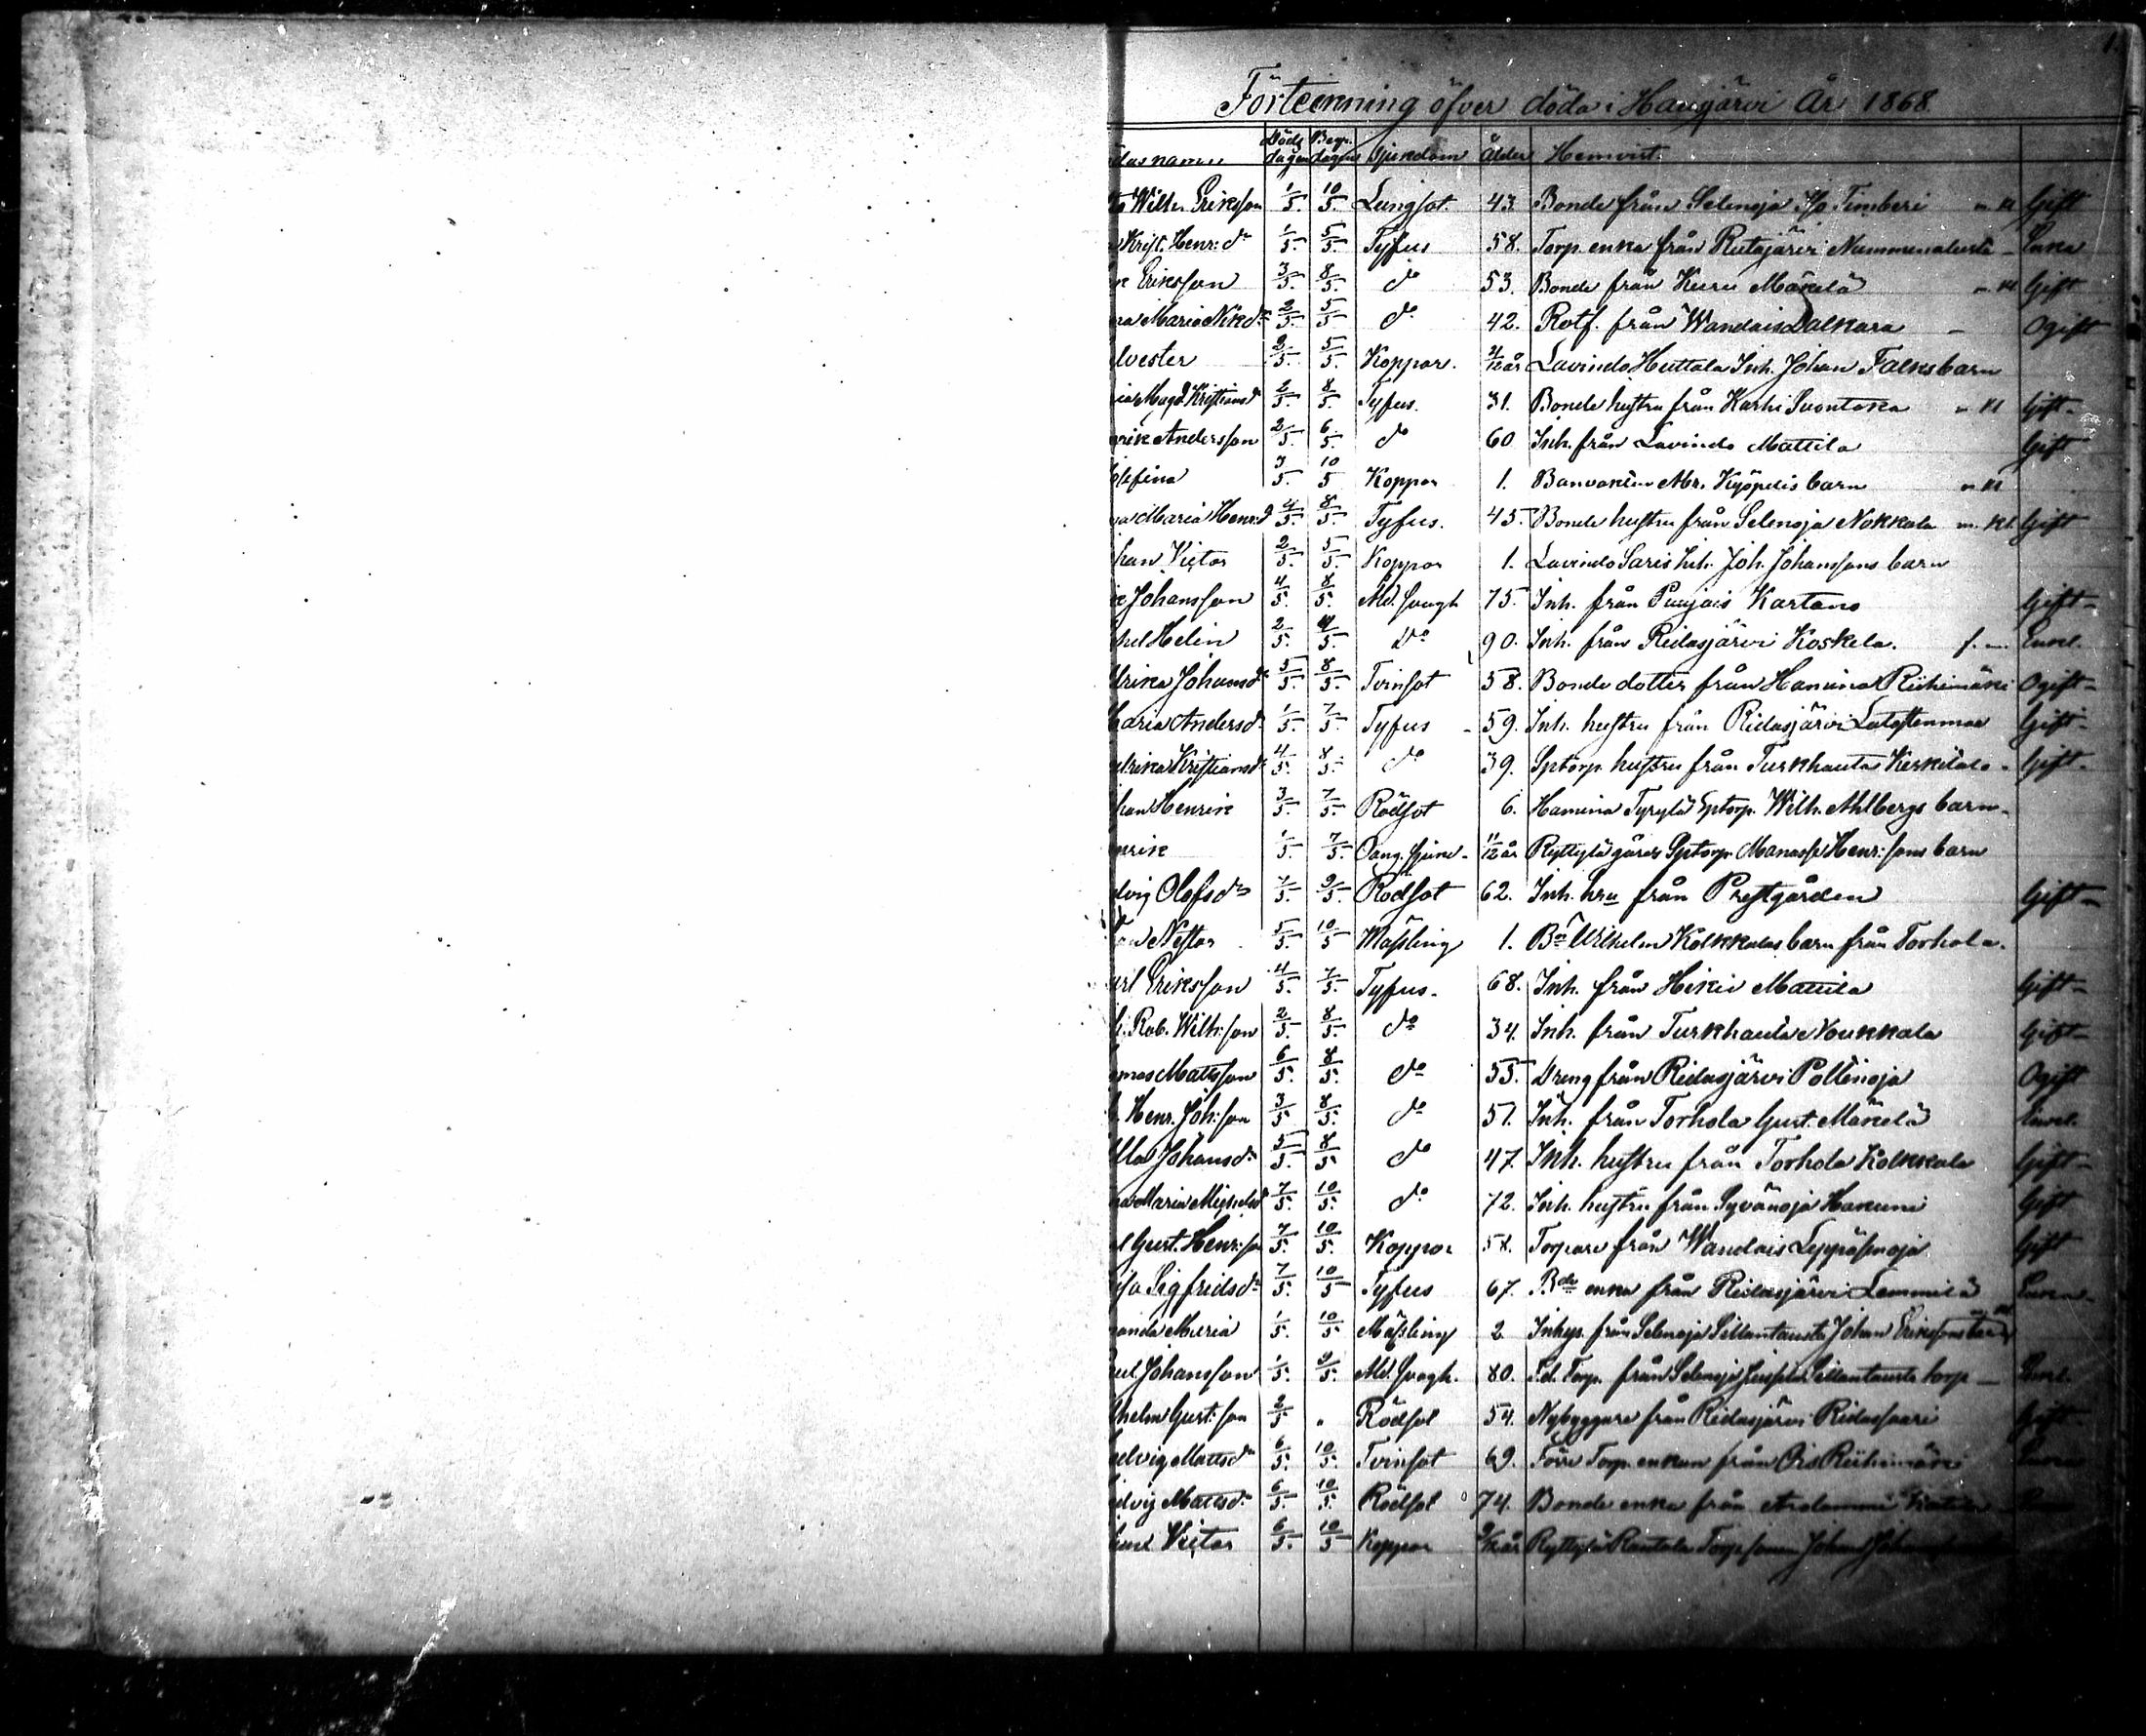 1.
Förteckning öfver döda i Hausjärvi År 1868.
das namn Döds dagen Begr. dagen Sjukdom Ålder Hemvist.
Wilh. Eriksson 1/5. 10/5. Lungsot. 43. Bonde från Selenoja Timberi Gift
Krist. Henr: dr 1/5 5/5 Tyfus 58. Torp. enka från Rutajärvi Nummenalusta Enka
Eriksson 3/5. 8/5. do 53. Bonde från Kuru Mäkelä Gift
Maria Nikdr 2/5. 5/5 do 42. Rotf. från Wandais Dalkara Ogift
lvester 2/5. 5/5. Koppor. år Lavindo Huttala Inh. Johan Falks barn
Magd. Kristiansdr 2/5. 8/5. Tyfus. 31. Bonde hustru från Karhi Suontaka Gift
rik Andersson 2/5 6/5 do 60 Inh. från Lavindo Mattila Gift
lefina 3/5. 10/5 Koppor 1. Banvakten Mr. Kyöpelis barn
Maria Henr:d 4/5. 8/5. Tyfus. 45. Bonde hustru från Selenoja Nokkala Gift
han Victor 2/5. 5/5. Koppor 1. Lavindo Saris Inh. Joh. Johanssons barn
Johansson 4/5. 8/5. Åld. svagh 75. Inh. från Puujais Kartano Gift
Helin 2/5. 4/5. do 90. Inh. från Ridasjärvi Koskela. Enkl.
lrika Johansdr 5/5. 8/5. Tvinsot 58. Bonde dotter från Hamina Riihimäki Ogift
aria Andersdr 1/5. 7/5. Tyfus 59. Inh. hustru från Ridasjärvi Gift
Kristiansdr 4/5. 8/5. do 39. Sptorp. hustru från Turkhauta Gift
han Henrik 3/5. 7/5. Rödsot 6. Hamina Tyrylä Sptorp. Wilh. Ahlbergs barn
nrik 1/5. 7/5. Oang. sjukd. 11/12 år Ryttylä gårds Sptorp. Manasse Henr:sons barn
dvig Olofsdr 7/5. 9/5. Rödsot 62. Inh. hru från Prestgården Gift
Nestor 5/5. 10/5 Mässling 1. Wilhelm Kolkkalas barn från Torhola.
arl Eriksson 4/5. 7/5. Tyfus. 68. Inh. från Hikiä Mattila Gift
Rob. Wilh:son 2/5. 8/5. do 34. Inh. från Turkhauta Noukkala Gift
mas Matsson 6/5. 8/5. do 55. Dreng från Ridasjärvi Pollinoja Ogift
Henr. Joh:son 3/5 8/5. do 57. Inh. från Torhola Gust. Mäkelä Enkl.
lla Johansdr 5/5. 8/5 do 47. Inh. hustru från Torhola Kolkkala Gift
Maria Michelsd 7/5. 10/5. do 72. Inh. hustru från Syvänoja Hakuni Gift
Gust. Henr:so 7/5. 10/5. Koppor Torpare från Wandais Leppäsuoja Gift
isa Sigfridsdr 7/5. 10/5 Tyfus 67. Bde enka från Ridasjärvi Lemmilä Enka
anda Maria 1/5. 10/5. Mässling 2 Inhys. från Selenoja Sillantausta Johan Erikssons barn
Johansson 1/5. 9/5. Åld. svagh. 80. F.d. Torp. från Selenoja Sillantausta torp Enkl.
helm Gust:son 2/5 " Rödsot 54. Nybyggare från Ridasjärvi Ridassaari Gift
edvig Mattsdr 6/5. 10/5. Tvinsot 69. Förre Torp. enkan från Ois Riihimäki Enka
dvig Mattsdr 6/5. 10/5. Rödsot 74. Bonde enka från
Victor 6/5. 10/5 Koppor år Ryttylä Rantala Torp sonen Johan